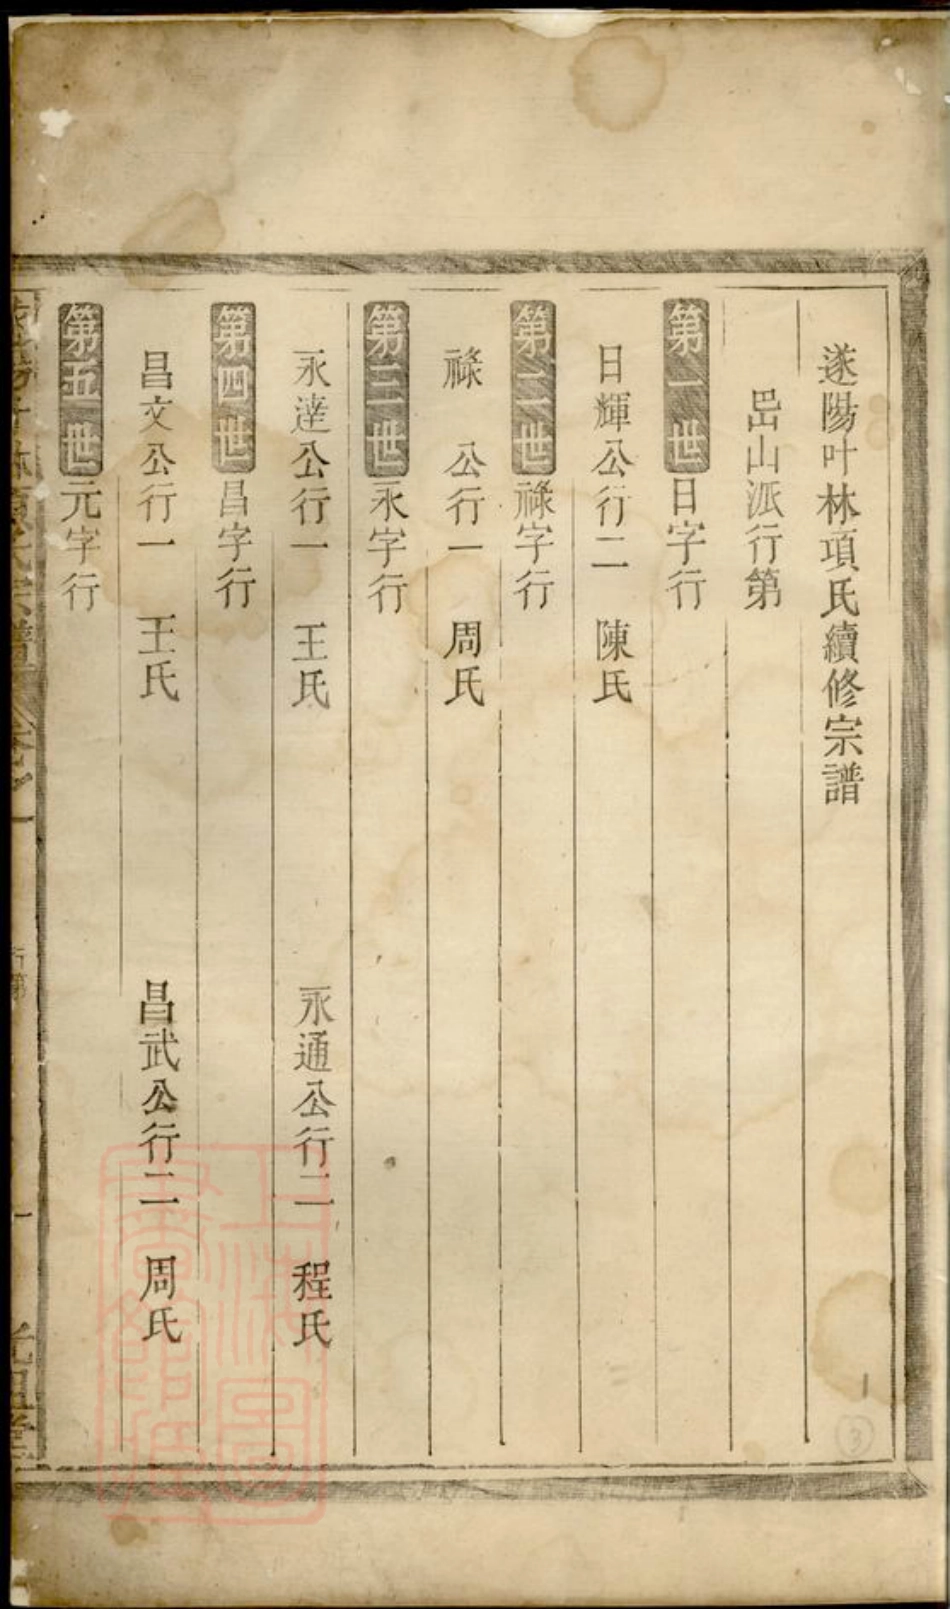 遂陽叶林項氏續修宗譜
岊山派行第
第一世日字行
日輝公行二 陳氏
第二世祿字行
祿 公行一 周氏
第三世永字行
永達公行一 王氏 永通公行二 程氏
第四世昌字行
昌文公行一 王氏 昌武公行二 周氏
第五世元字行
行第
一
上海圖書館藏
1
3